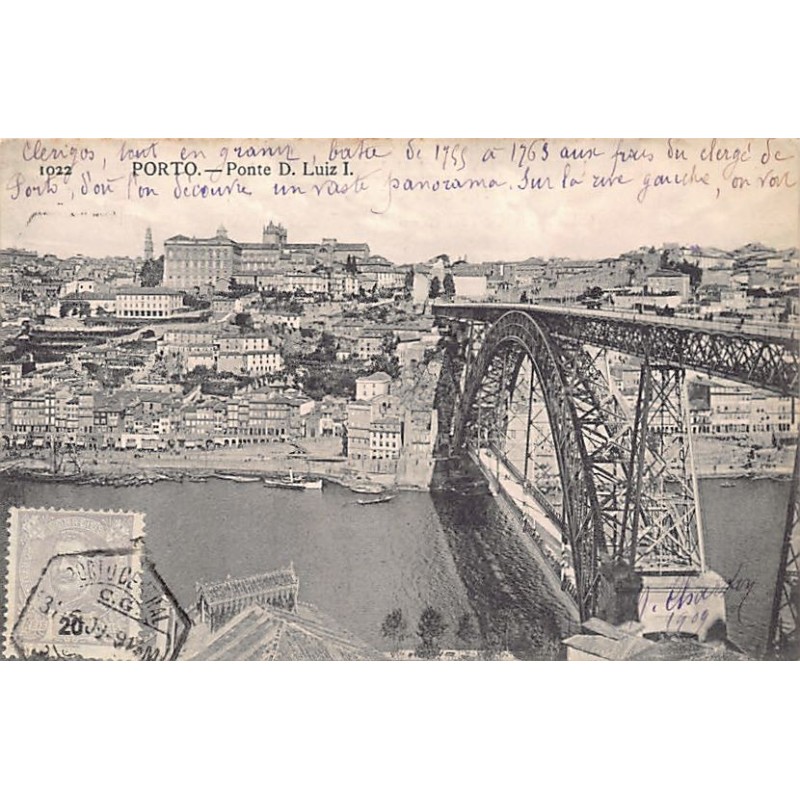 Clerigos, tout en granit, batie de 1755 à 1763 aux frais du clergé de
1022 PORTO. — Ponte D. Luiz I.
Porto, d'où l'on découvre un vaste panorama. Sur la rive gauche, on voit
PORTO CENTRAL
20
1909